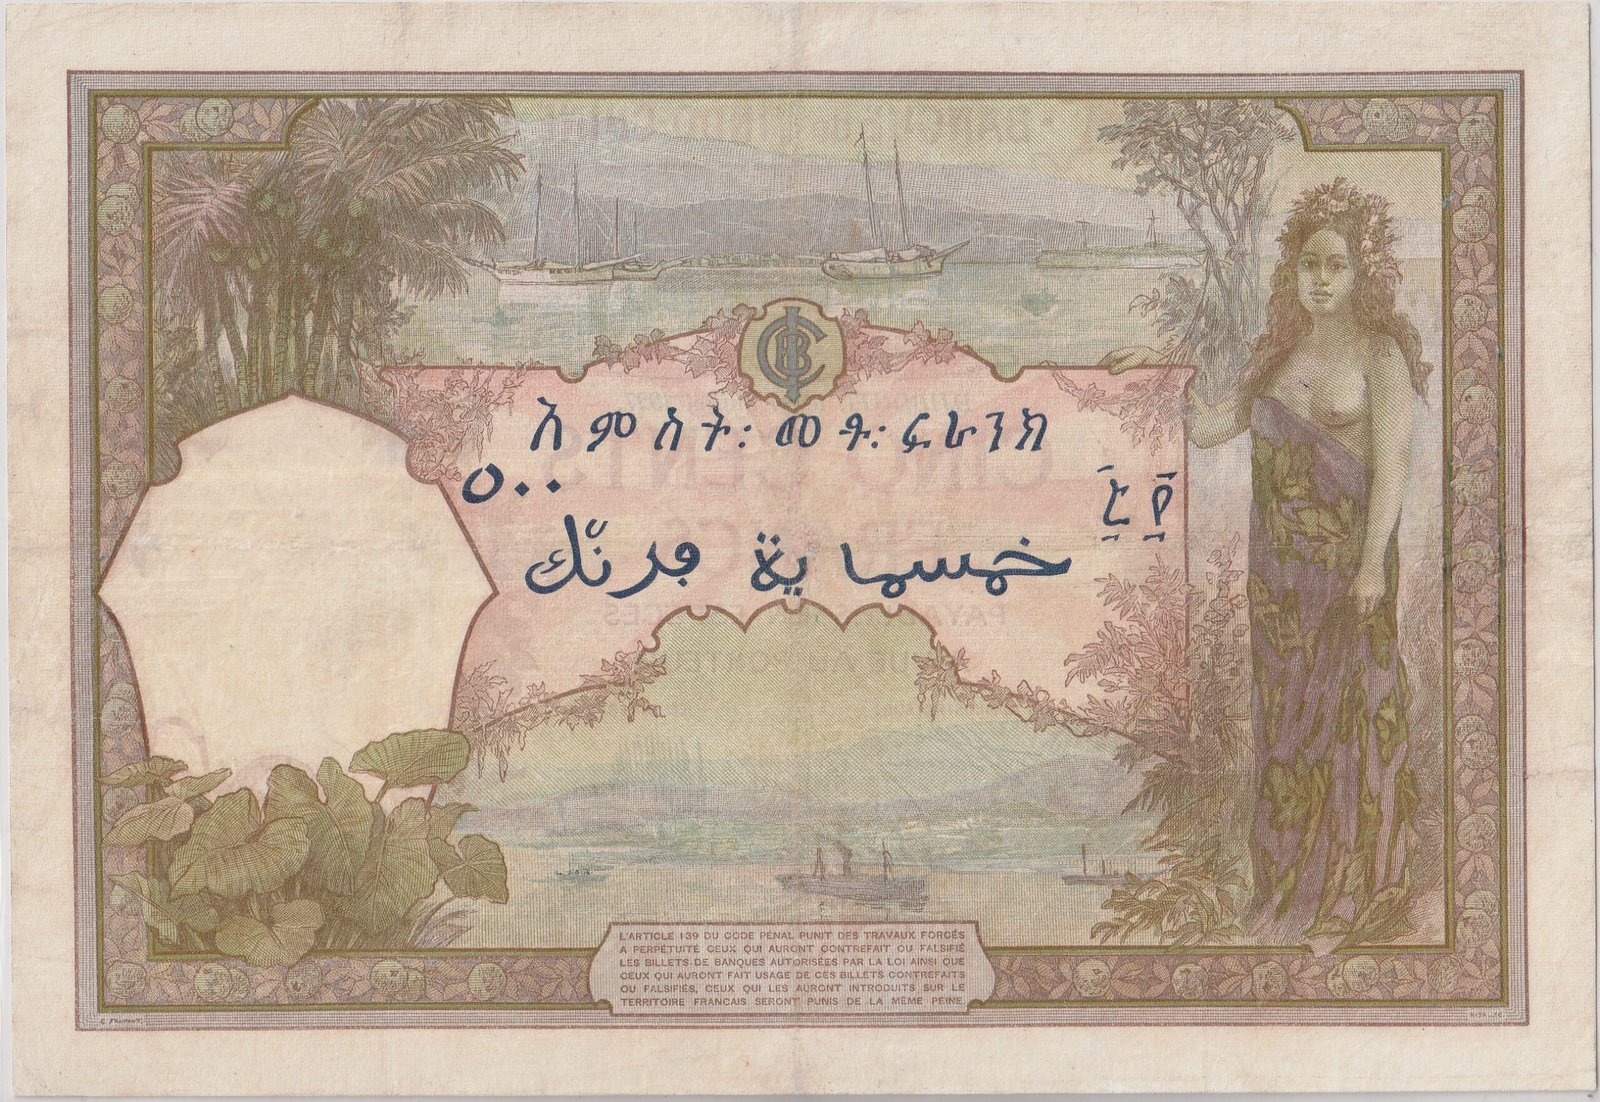 አምስት፡ መቶ፡ ፍራንክ
٥٠٠
፭፻
خمسماية فرنك
L'ARTICLE 139 DU CODE PENAL PUNIT DES TRAVAUX FORCÉS
A PERPÉTUITÉ CEUX QUI AURONT CONTREFAIT OU FALSIFIÉ
LES BILLETS DE BANQUES AUTORISÉES PAR LA LOI AINSI QUE
CEUX QUI AURONT FAIT USAGE DE CES BILLETS CONTREFAITS
OU FALSIFIÉS, CEUX QUI LES AURONT INTRODUITS SUR LE
TERRITOIRE FRANCAIS SERONT PUNIS DE LA MÊME PEINE.